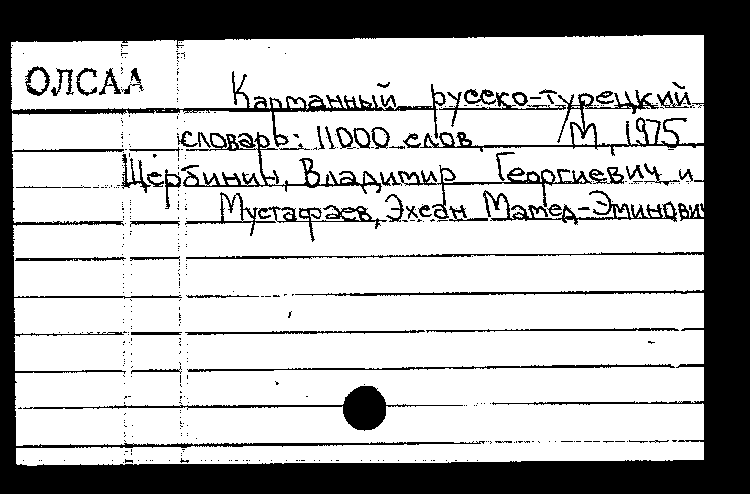 ОЛСАА
Карманный русско-турецкий
словарь: 11000 слов. /М., 1975.
Щербинин, Владимир Георгиевич и
Мустафаев, Эхсан Мамед-Эминович